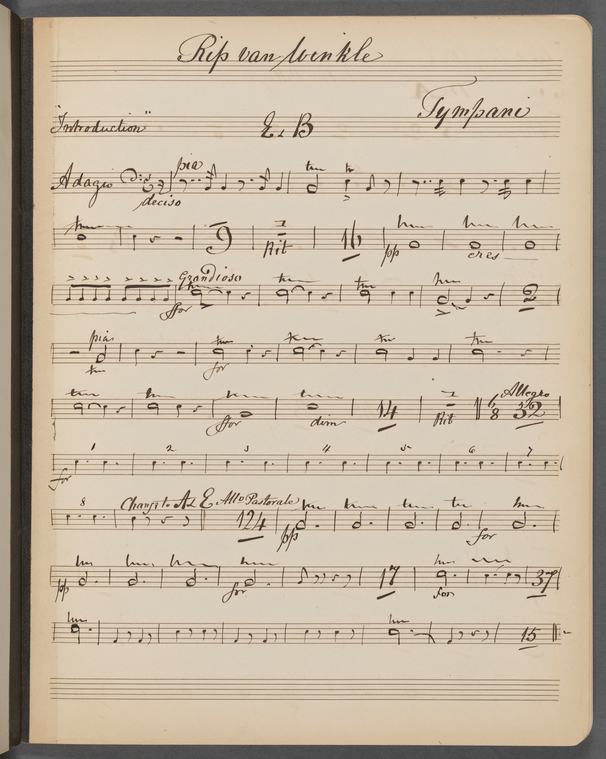 Rip van Winkle
Tympani
"Introduction" E & B
Adagio pia tr tr
deciso
tr 9 Rit 16 pp cres
Grandioso
ffor 2
pia
tr for
ffor dim 14 Rit Allegro 6/8 32
1 2 3 4 5 6 7
for
8 Change to A & E Allo Pastorale
124 pp for
pp for 17 for 37
15